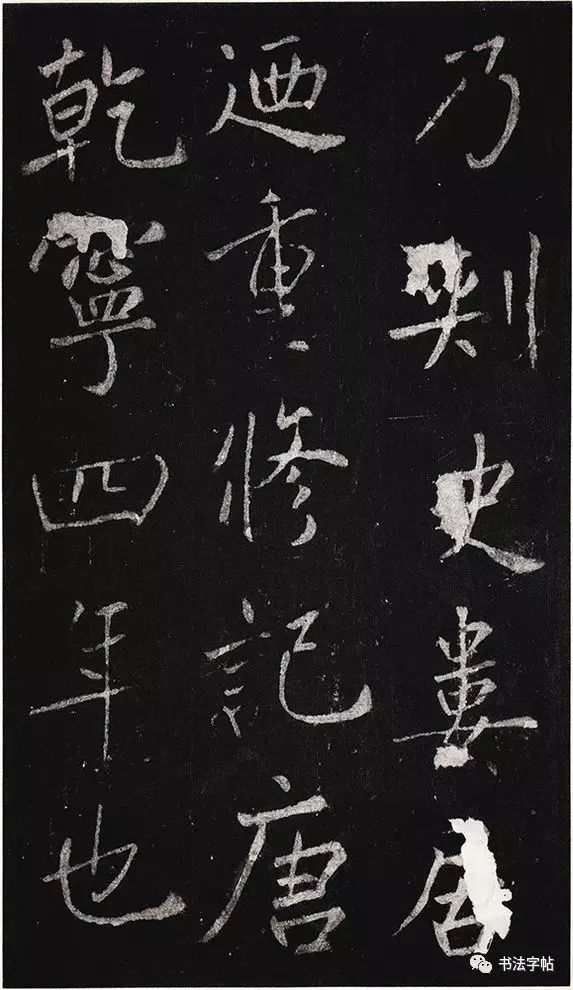 乃刺史婁居
迺重修記唐
乾寧四年也
书法字帖